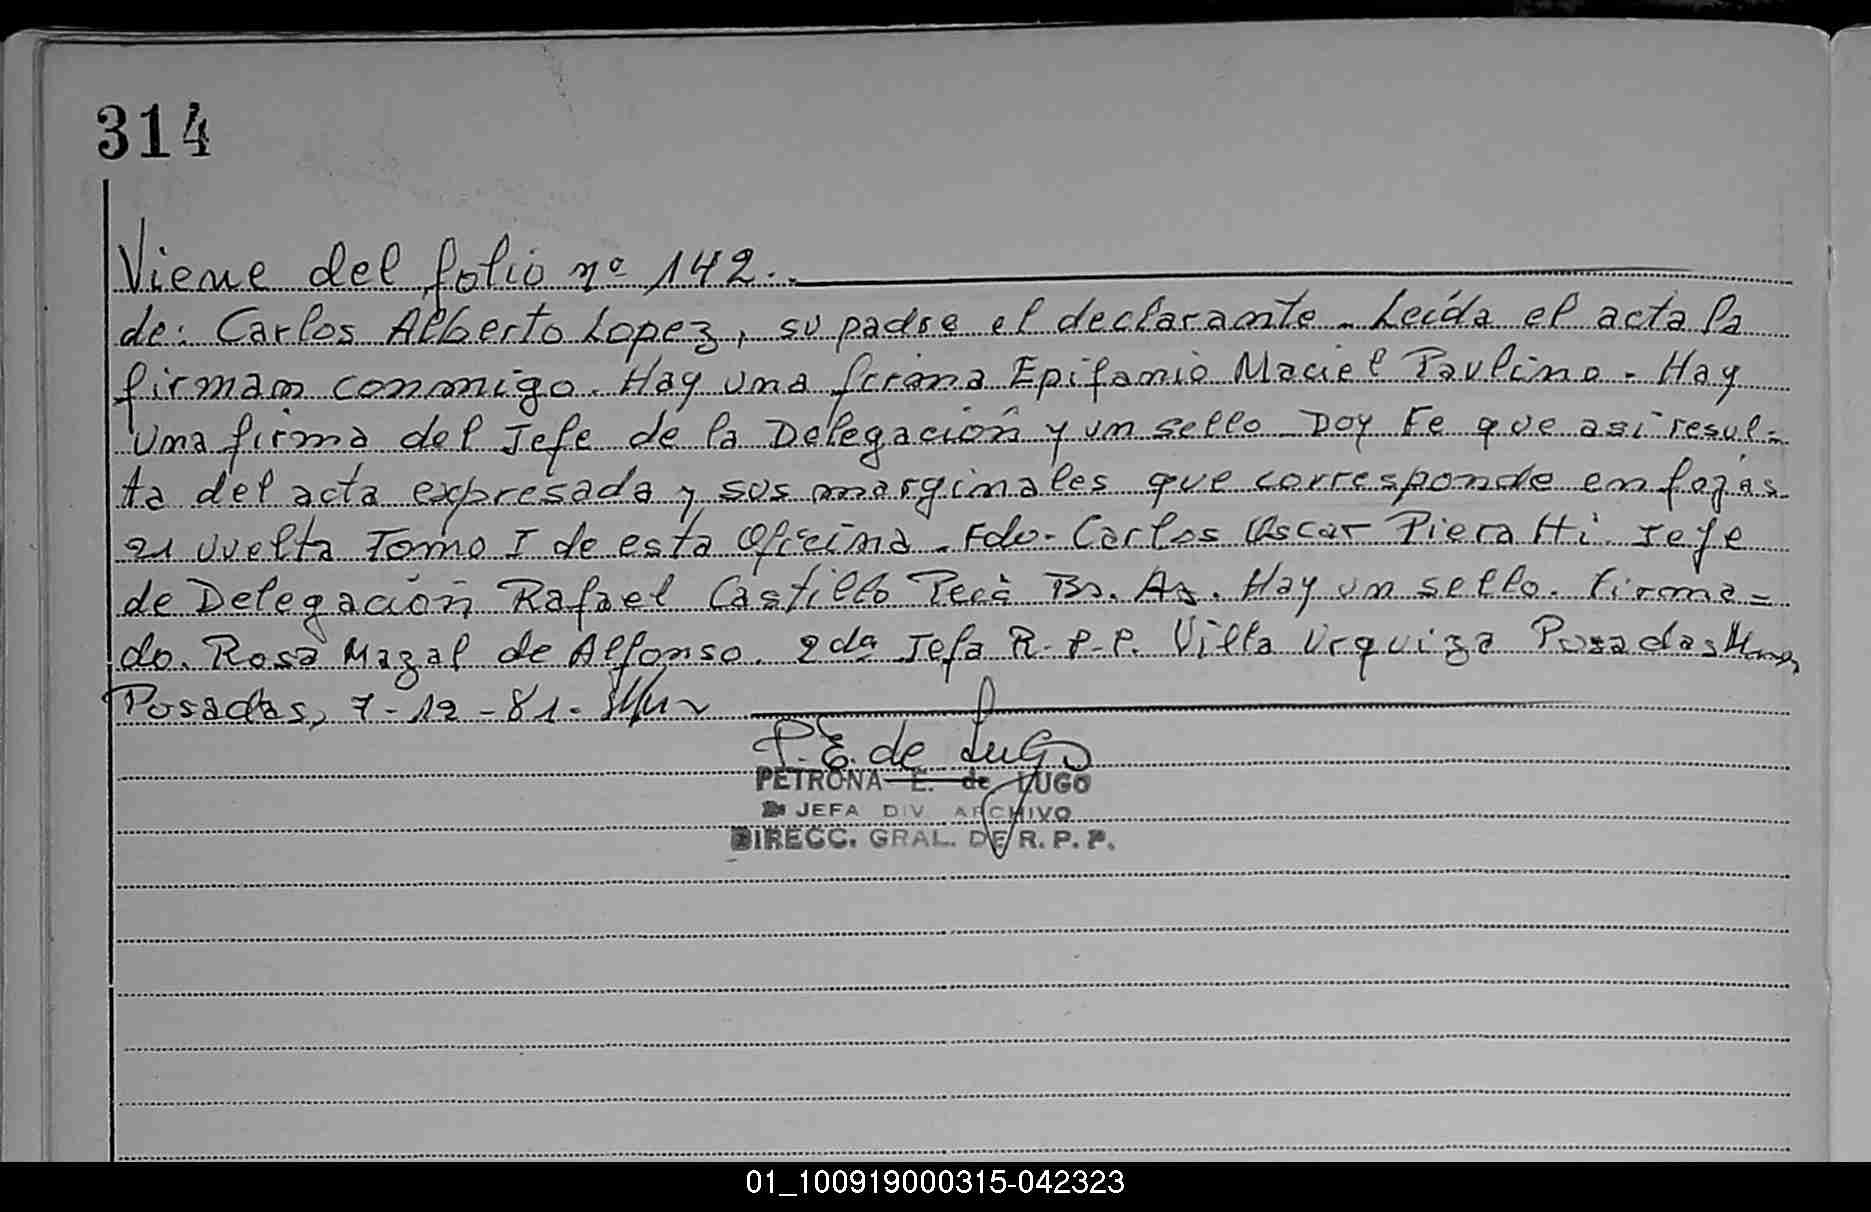 314
Viene del folio nº 142..
de: Carlos Alberto Lopez, su padre el declarante - Leída el acta la
firman conmigo. Hay una firma Epifanio Maciel Paulino - Hay
una firma del Jefe de la Delegación y un sello Doy Fe que asi resul=
ta del acta expresada y sus marginales que corresponde en fojas
21 vuelta Tomo I de esta Oficina - Fdo - Carlos Oscar Pieratti. Jefe
de Delegación Rafael Castillo Bs. As. Hay un sello. Firma=
do. Rosa Mazal de Alfonso. 2da Jefa R.P.P. Villa Urquiza Posadas Mnes,
Posadas, 7-12-81.
P. E. de Lugo
PETRONA E. de LUGO
JEFA DIV. ARCHIVO
DIRECC. GRAL. DE R. P. P.
01_100919000315-042323